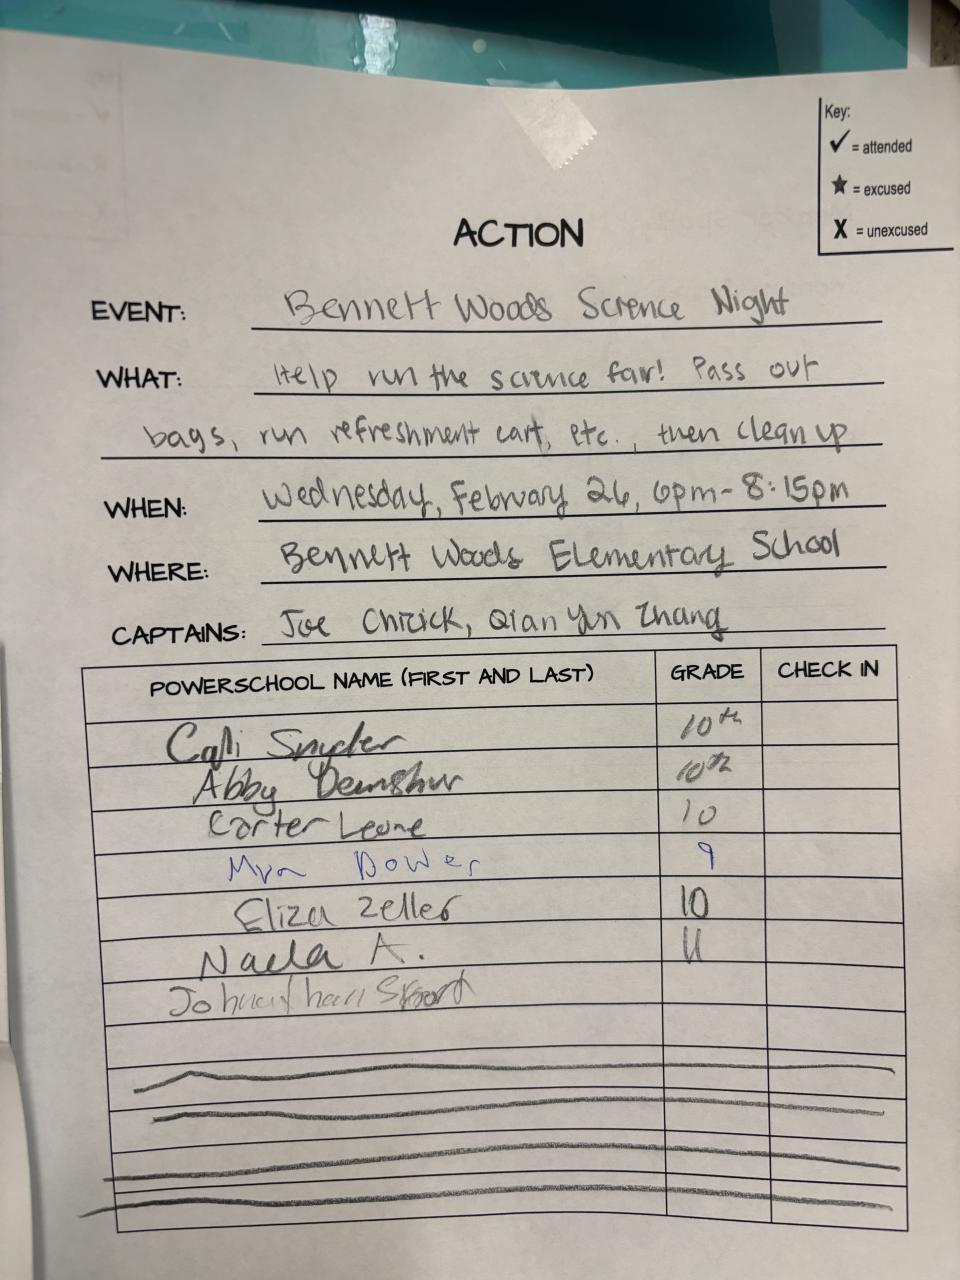 Key:
✓ = attended
★ = excused
X = unexcused
ACTION
EVENT: Bennett Woods Science Night
WHAT: Help run the science fair! Pass out
bags, run refreshment cart, etc., then clean up
WHEN: Wednesday, February 26, 6pm-8:15pm
WHERE: Bennett Woods Elementary School
CAPTAINS: Joe Chizick, Qian Yun Zhang
POWERSCHOOL NAME (FIRST AND LAST) GRADE CHECK IN
Cali Snyder 10th
Abby 10th
Carter Leone 10
Bower 9
Eliza Zeller 10
Naela A. 11